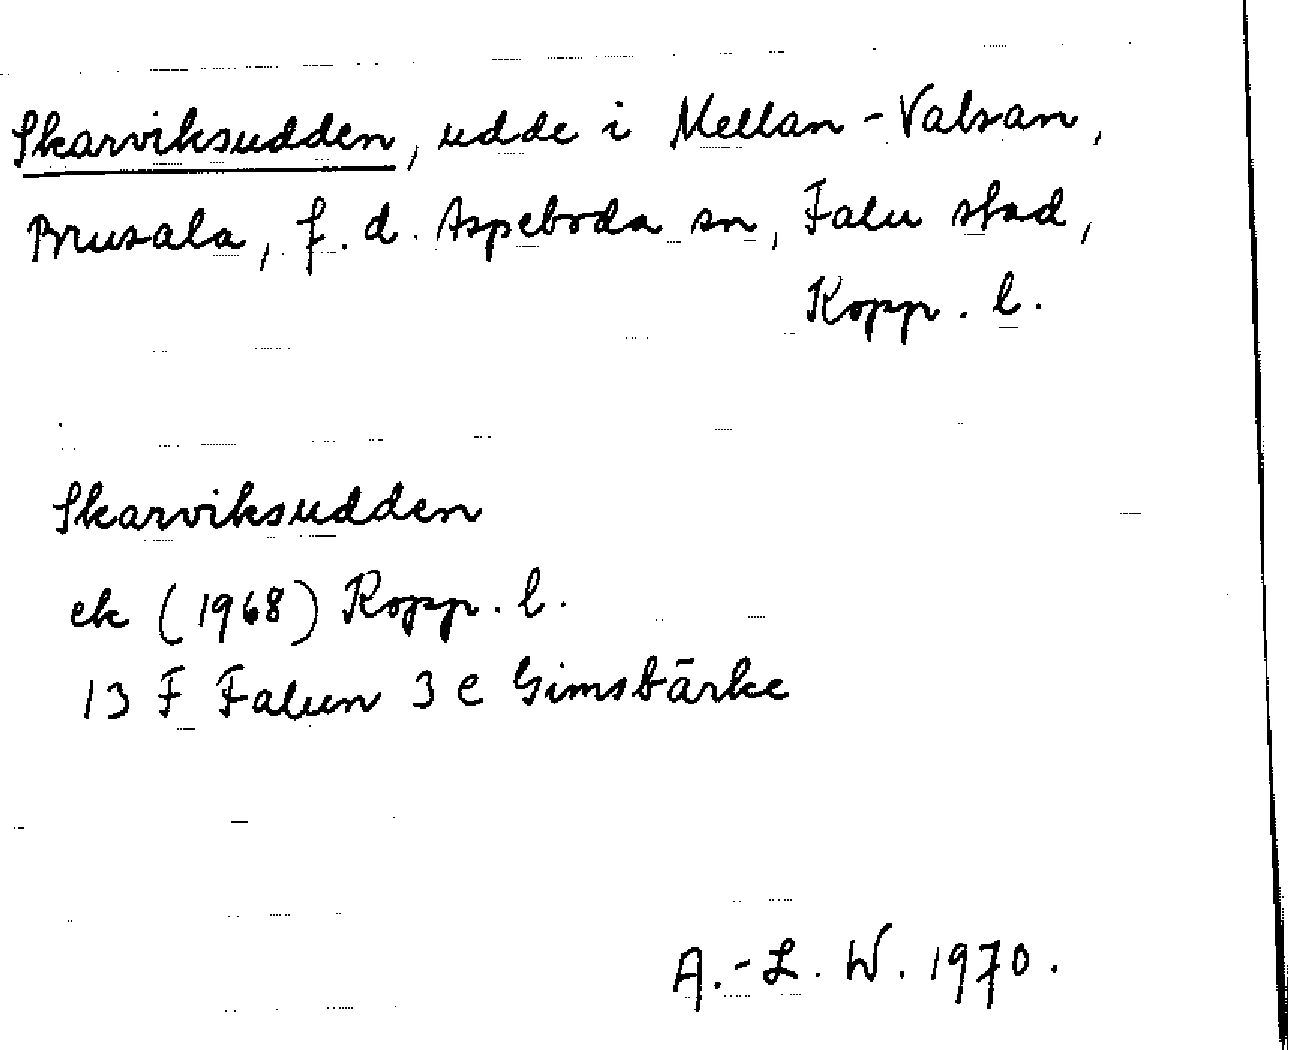 Skarviksudden, udde i Mellan-Valsan,
Brusala, f. d. Aspeboda sn, Falu stad,
Kopp. l.
Skarviksudden
ek (1968) Kopp. l.
13 F Falun 3 e Gimsbärke
A.-L. W. 1970.